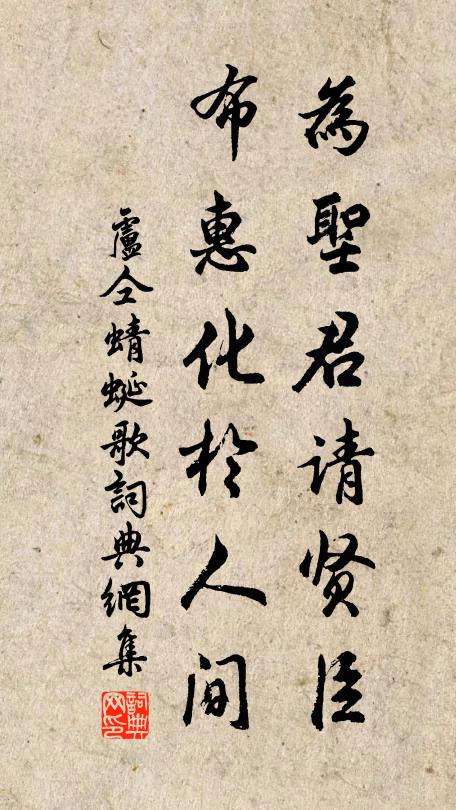 為聖君请贤臣
布惠化於人间
盧仝蜻蜒歌詞典網集
詞典
网印